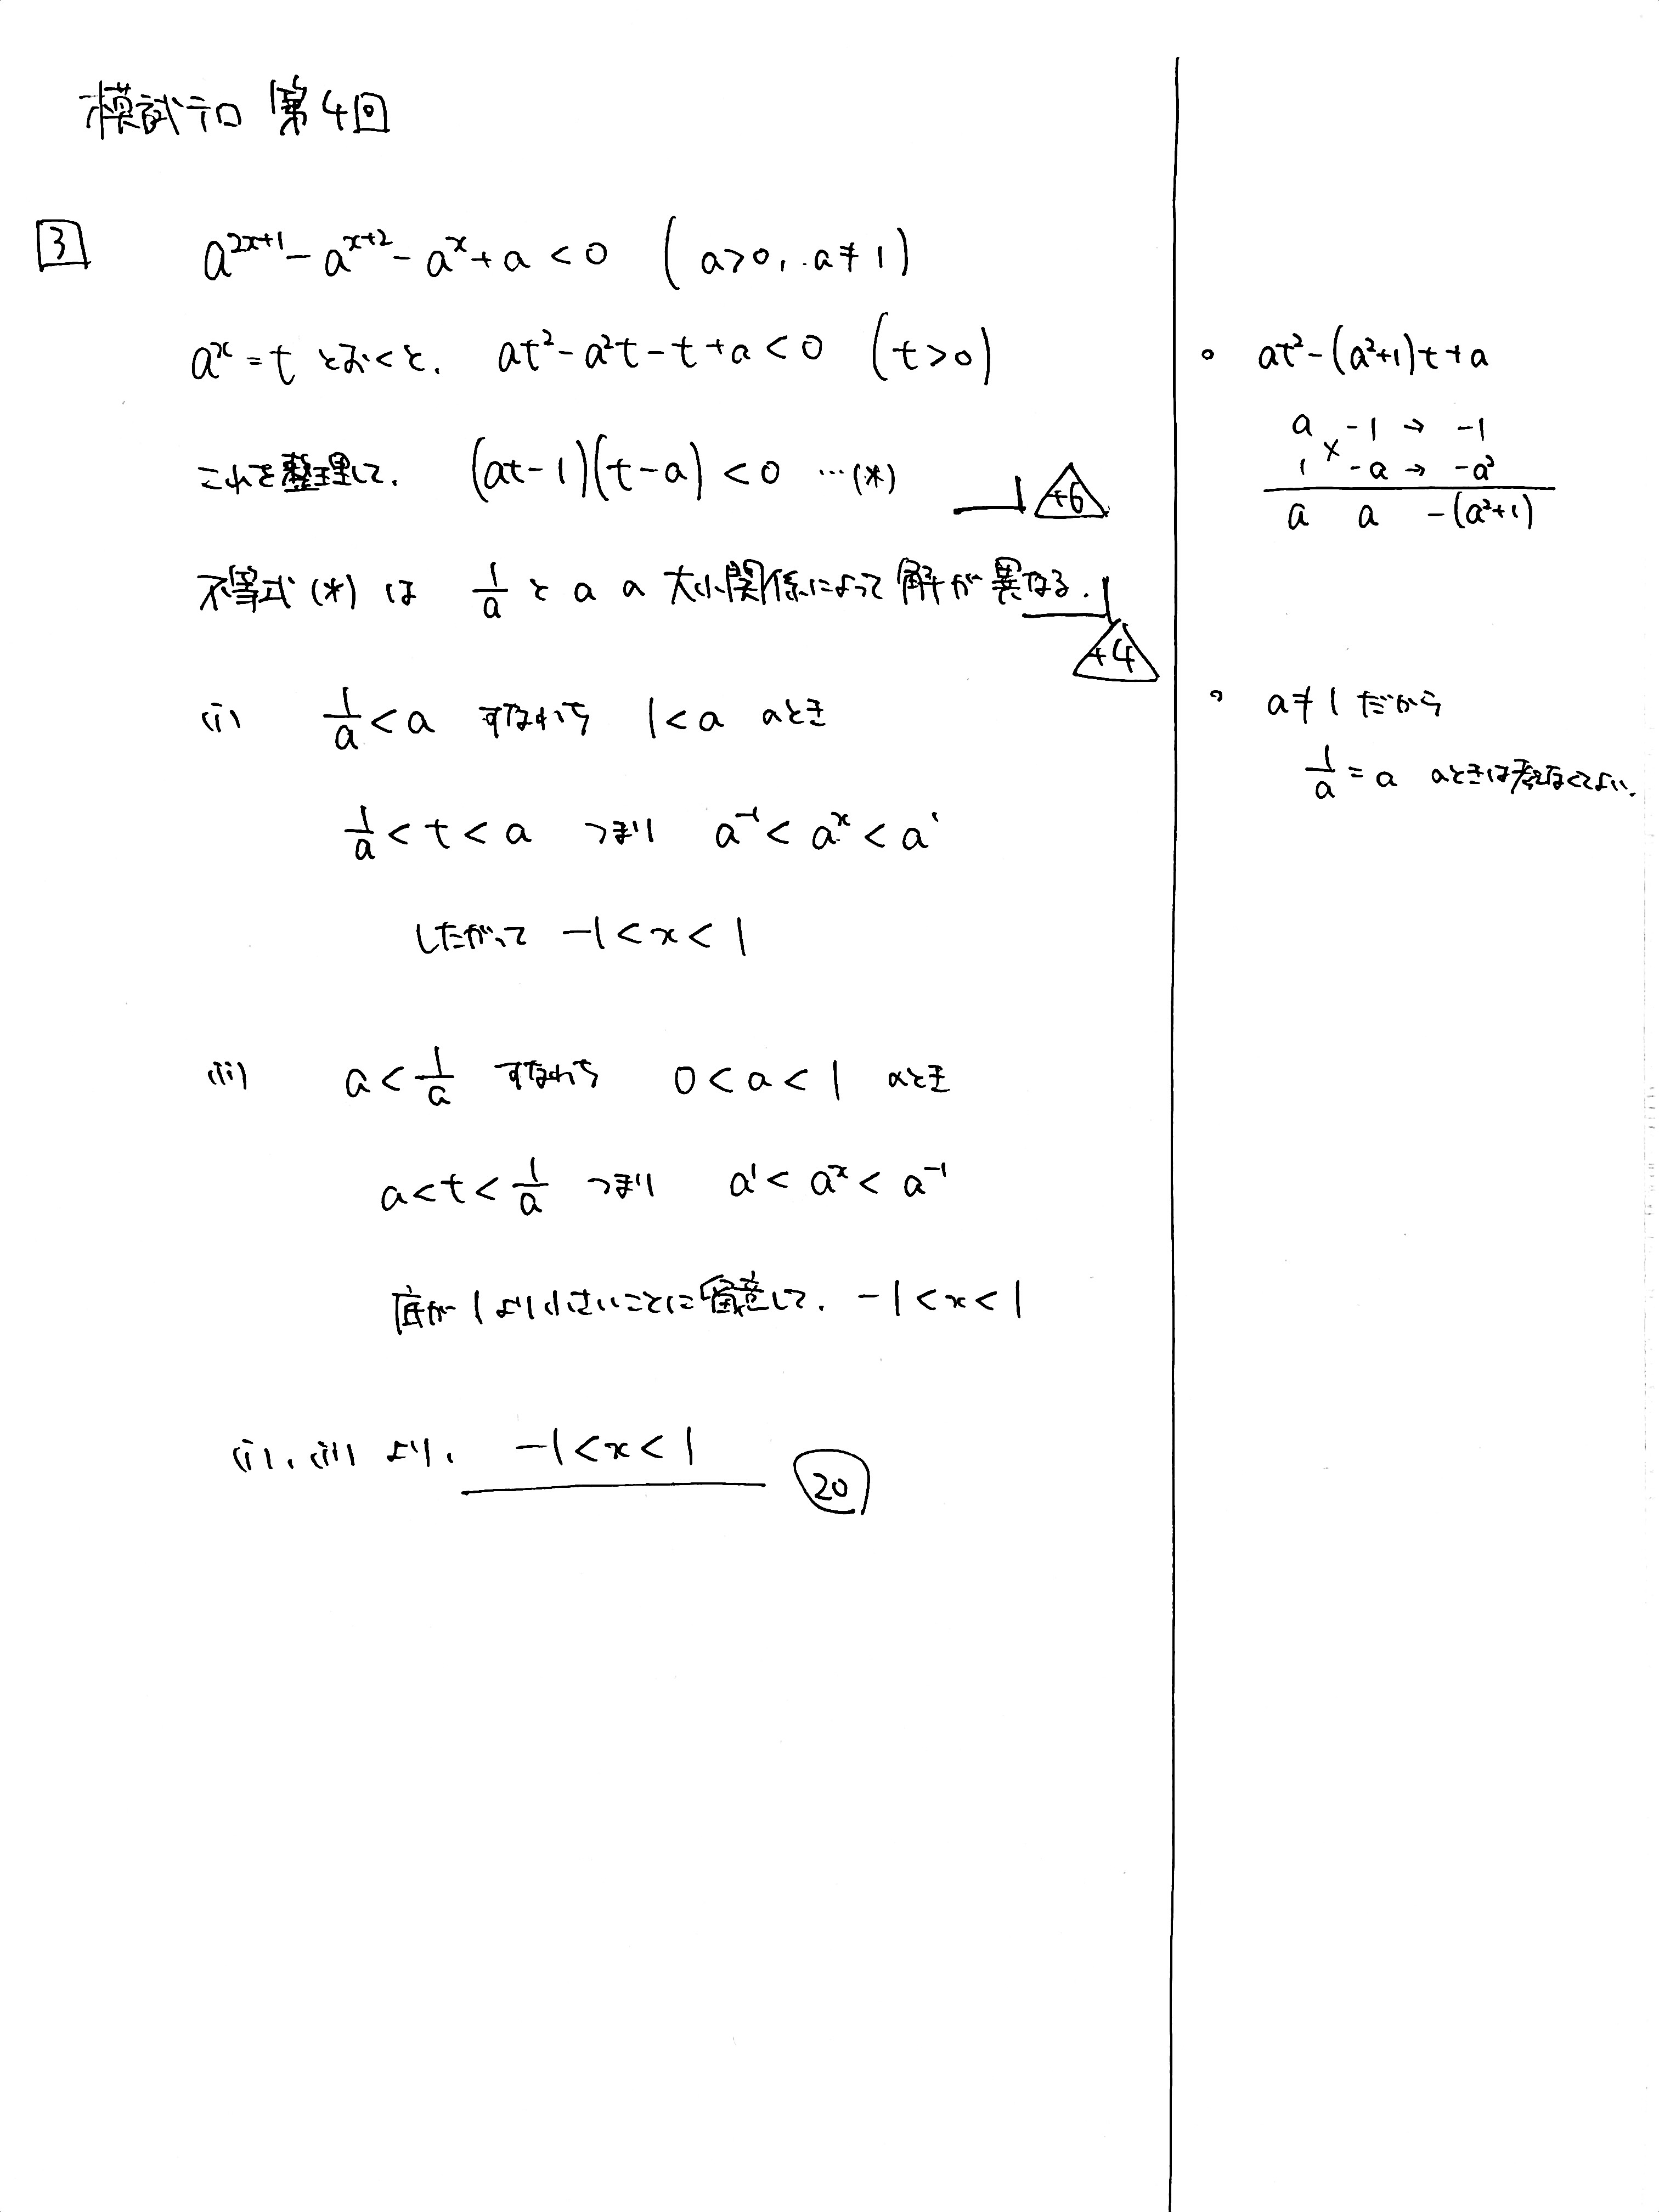 模試テロ 第4回
3 a^{2x+1} - a^{x+2} - a^x + a < 0 (a>0, a≠1)
a^x = t とおくと、 at² - a²t - t + a < 0 (t>0)
これを整理して、 (at-1)(t-a) < 0 …(*) +6
不等式(*)は 1/a と a の大小関係によって解が異なる. +4
(i) 1/a < a すなわち 1 < a のとき
1/a < t < a つまり a^{-1} < a^x < a^1
したがって -1 < x < 1
(ii) a < 1/a すなわち 0 < a < 1 のとき
a < t < 1/a つまり a^1 < a^x < a^{-1}
底が1より小さいことに留意して、 -1 < x < 1
(i)、(ii) より、 -1 < x < 1 20
○ at² - (a²+1)t + a
a × -1 → -1
1 -a → -a²
a a -(a²+1)
○ a≠1 だから
1/a = a のときは考えなくてよい.